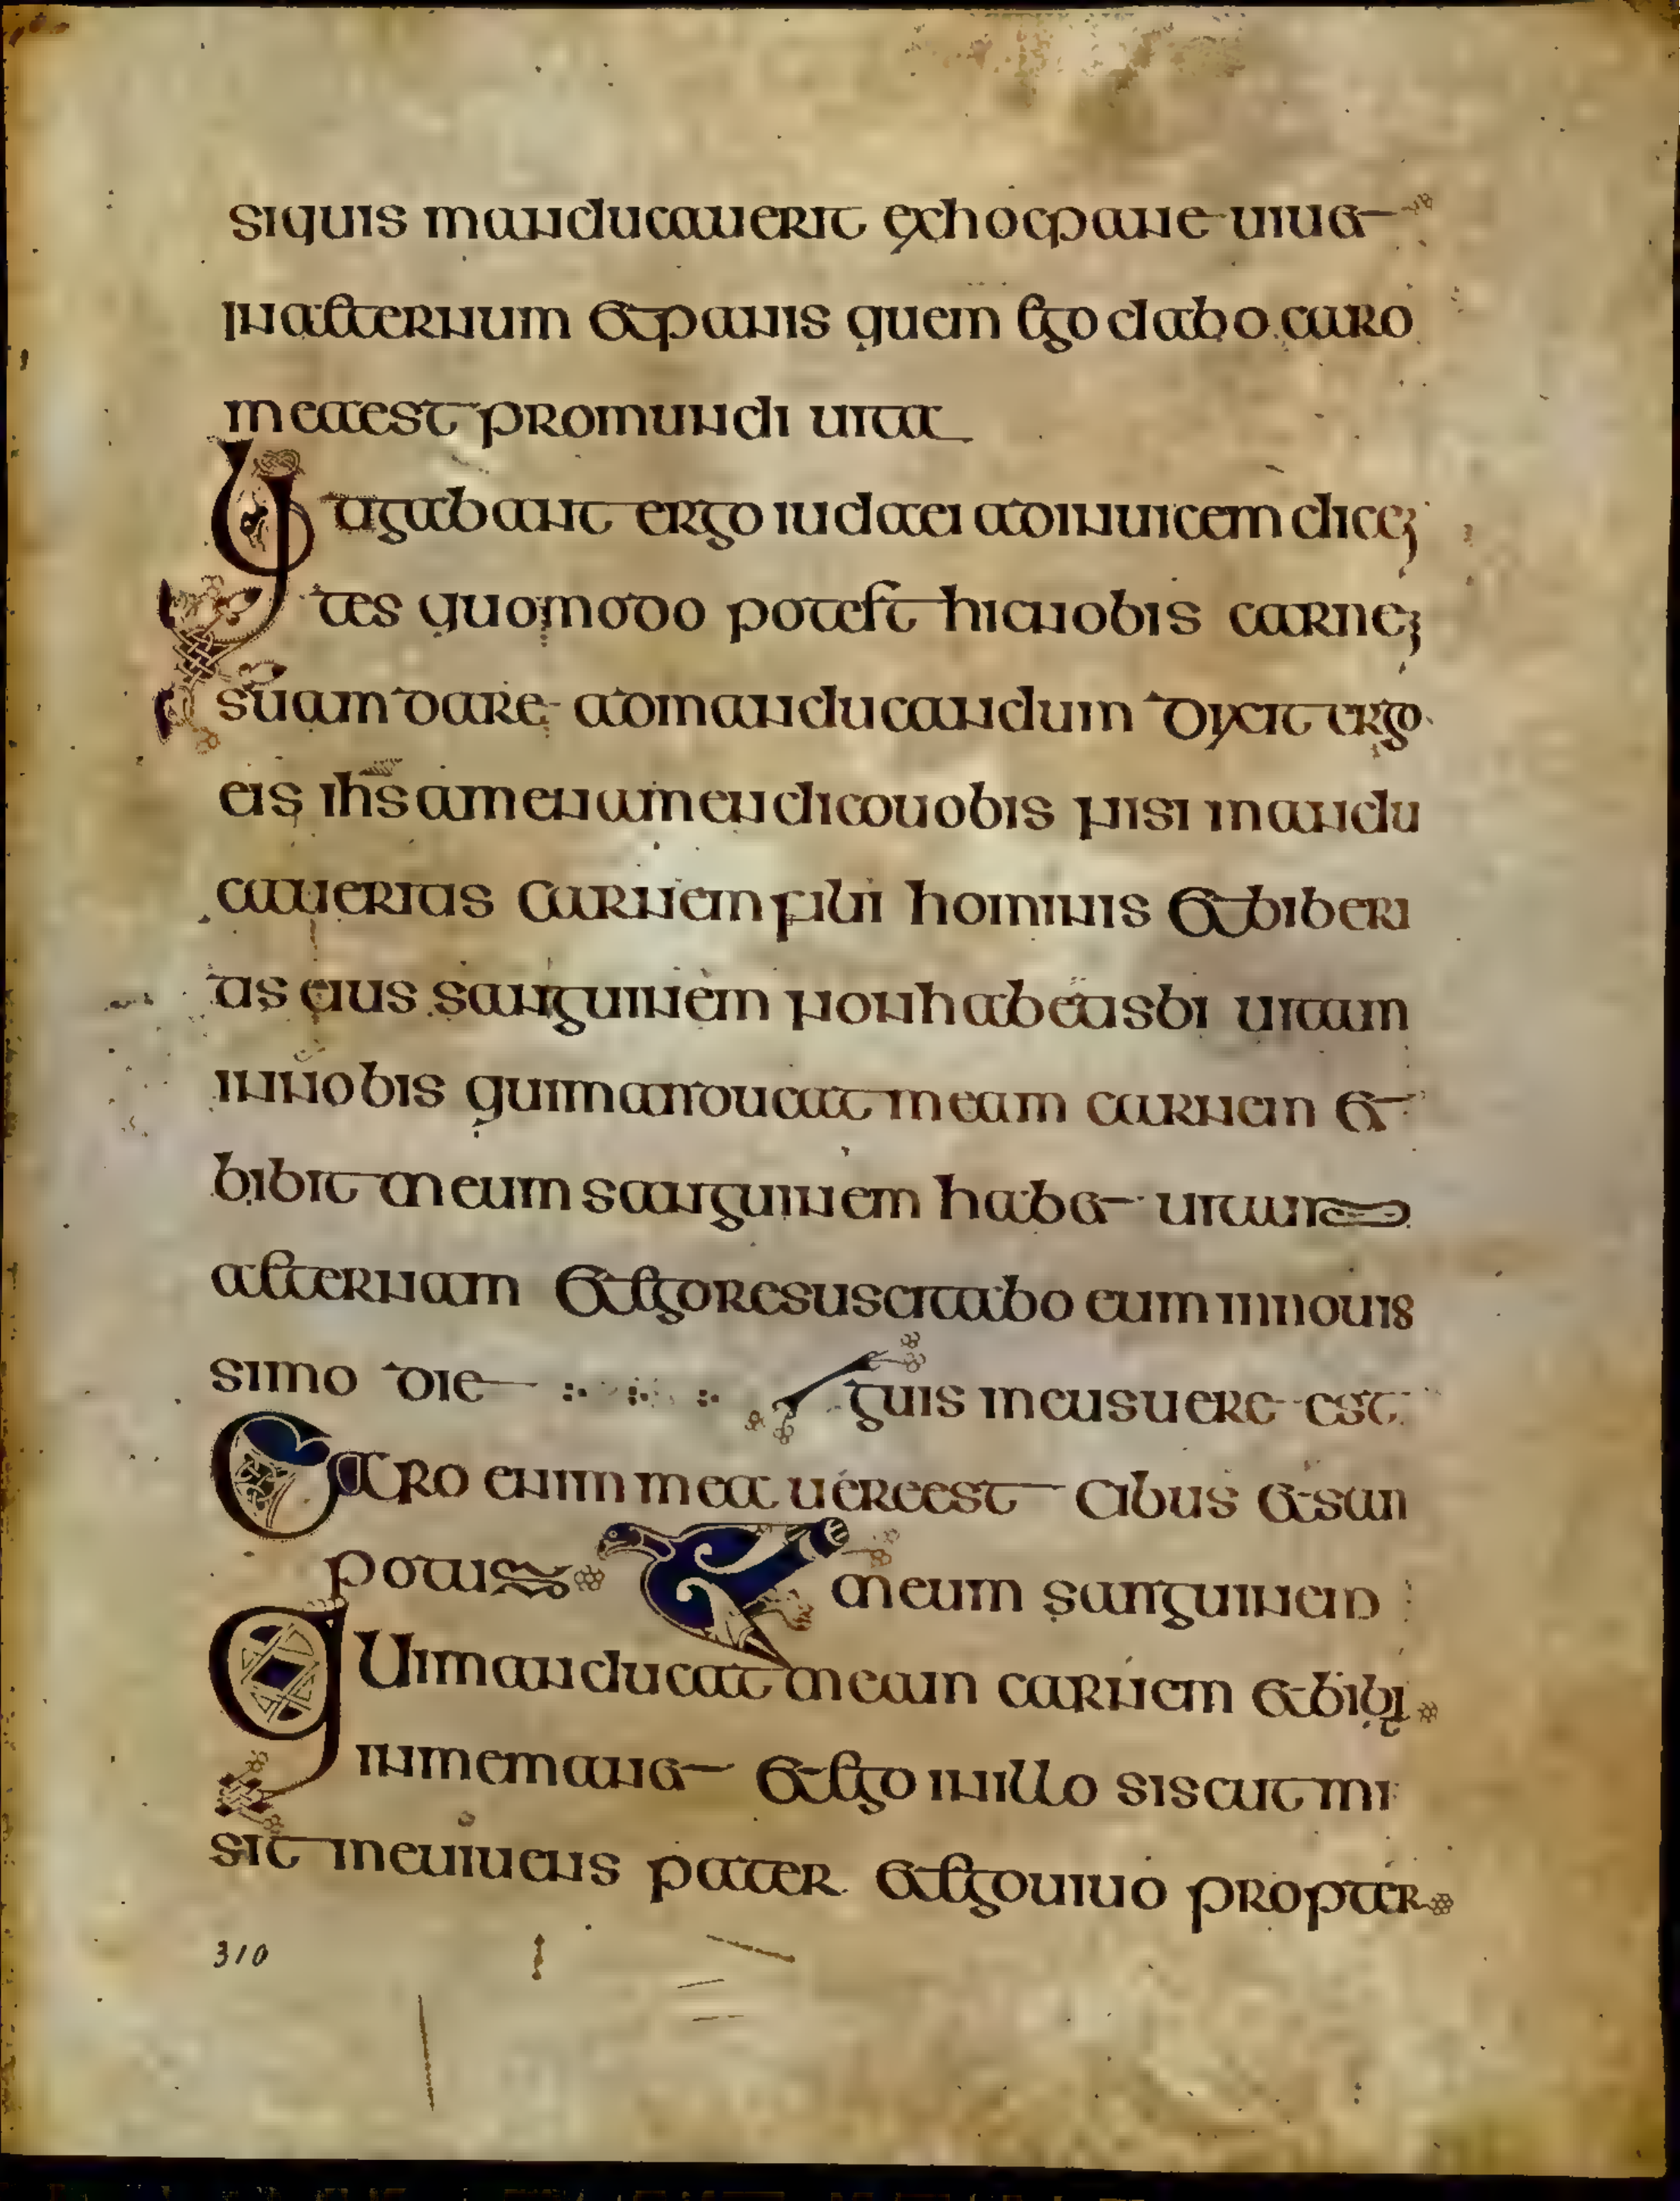 siquis manducauerit ex hoc pane uiuet
in aeternum et panis quem ego dabo caro
mea est pro mundi uita
Litigabant ergo iudaei ad inuicem dicen
tes quomodo potest hic nobis carnem
suam dare ad manducandum dixit ergo
eis ihs amen amen dico uobis nisi mandu
caueritis carnem filii hominis et biberi
tis eius sanguinem non habebitis uitam
in uobis qui manducat meam carnem et
bibit meum sanguinem habet uitam
aeternam et ego resuscitabo eum in nouis
simo die
guis meus uere est
Caro enim mea uere est cibus et san
potus
meum sanguinem
Qui manducat meam carnem et bibit
in me manet et ego in illo sicut mi
sit me uiuens pater et ego uiuo propter
310